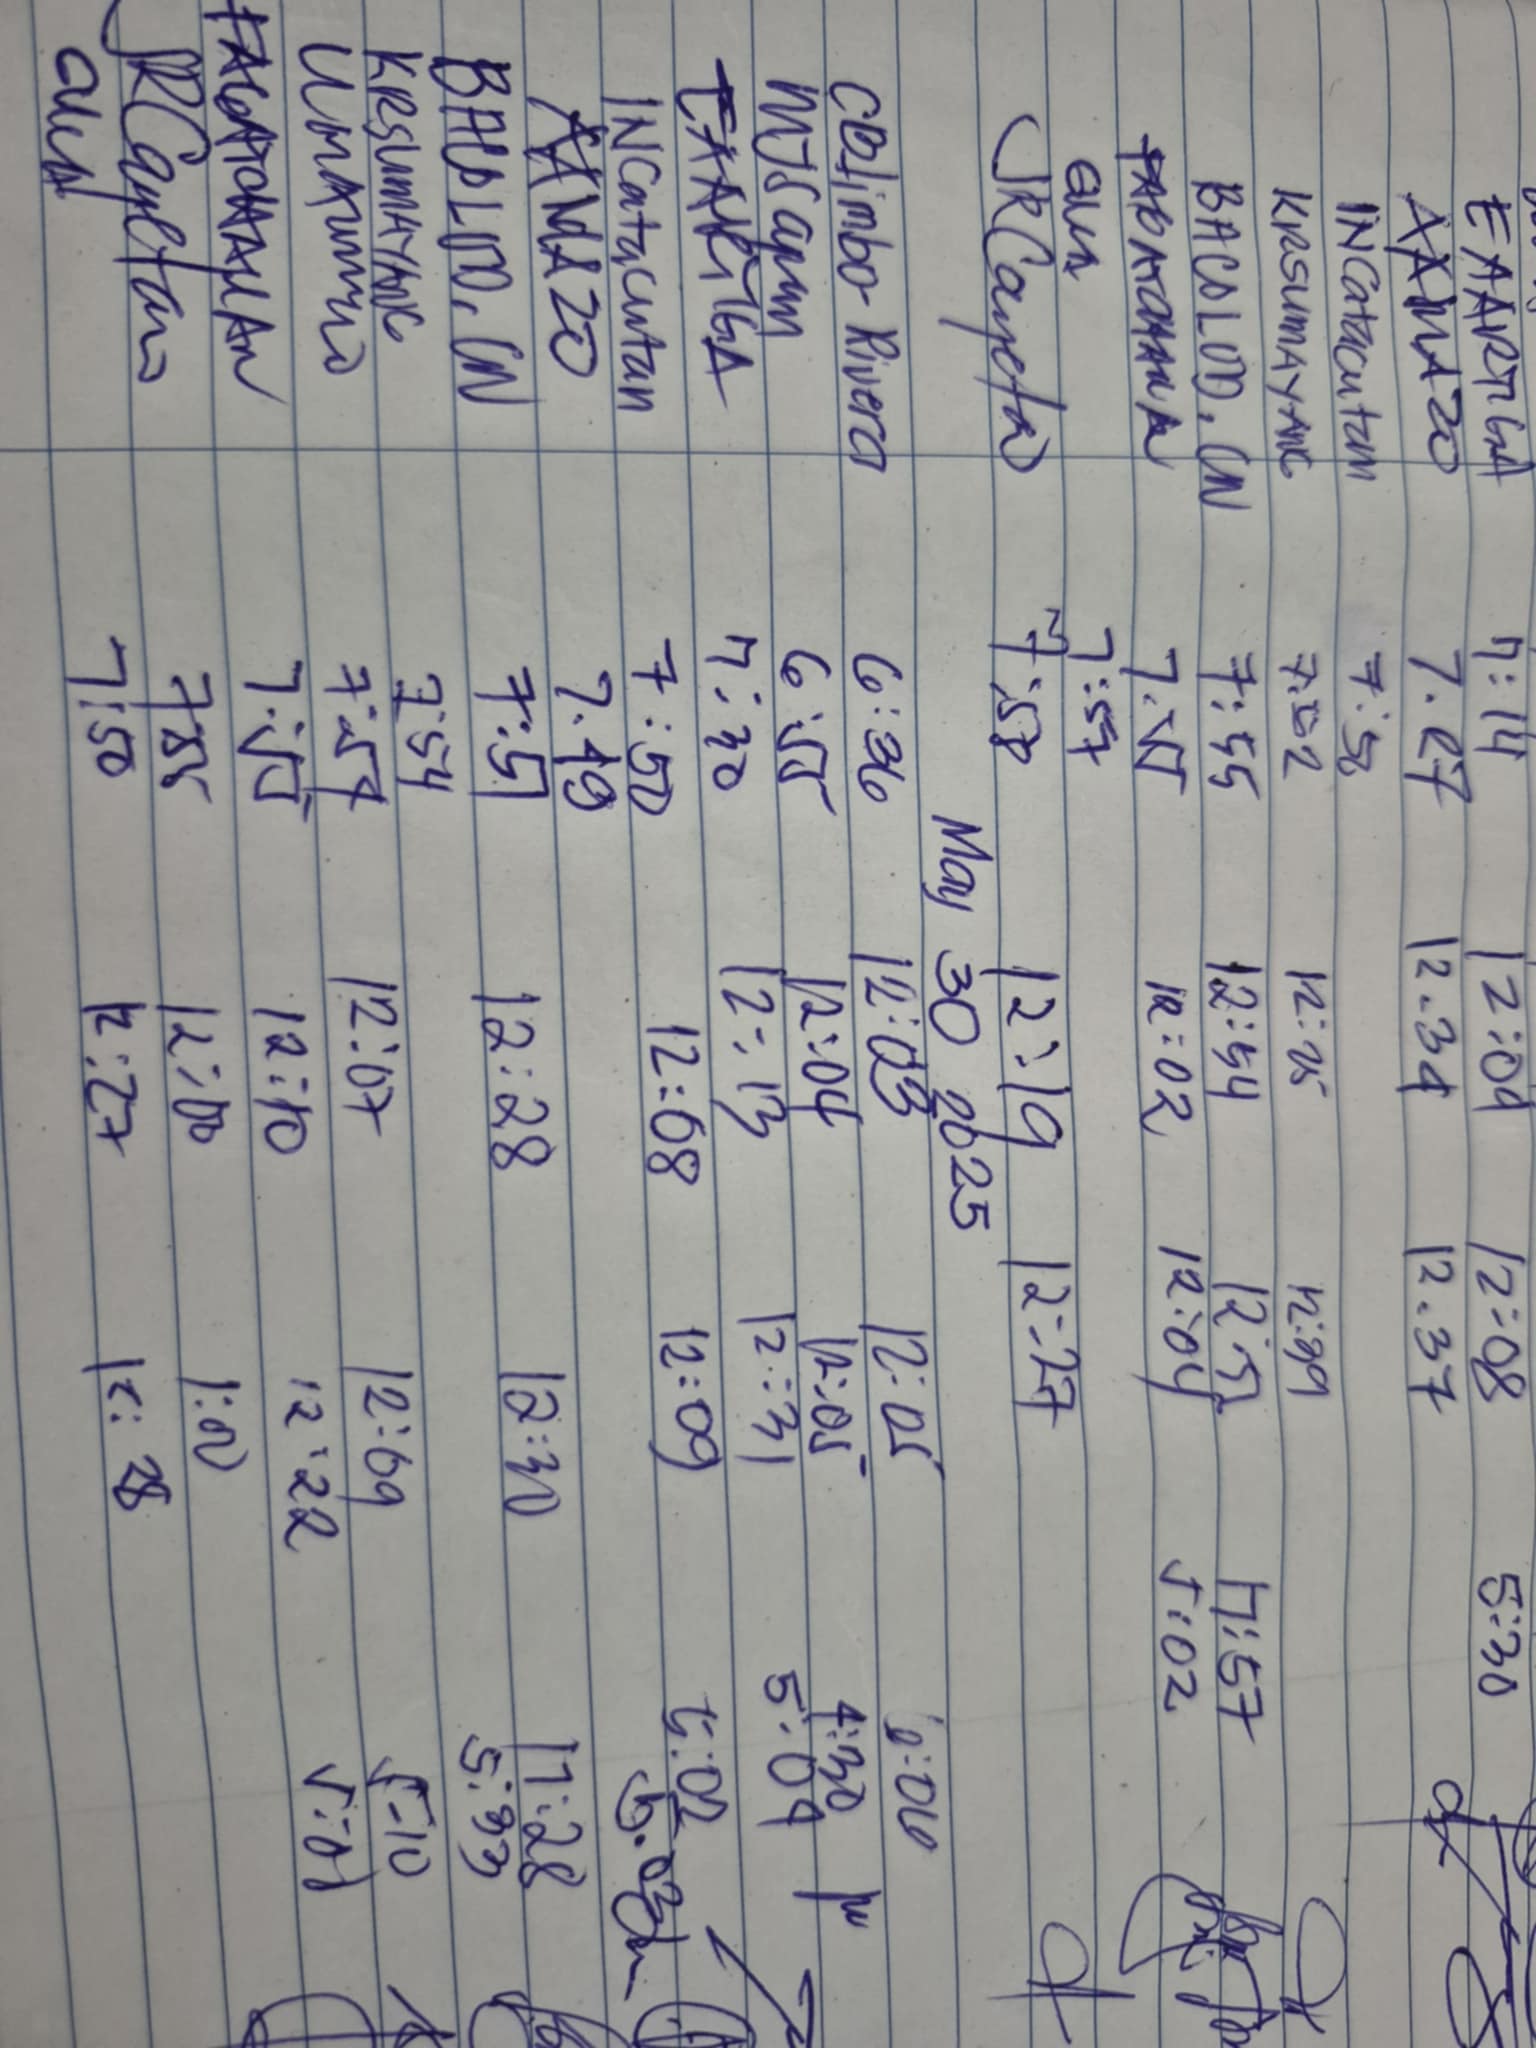 EAARTIGA 7:14 12:04 12:08 5:30
AAMAZO 7.27 12.34 12.37
INCatacutan 7:52
KRSUMAYANG 7:52 12:25
BACDLOD, CN 7:55 12:54 12:57 17:57
7:55 12:02 12:04 5:02
7:57
JRCayetano 7:58 12:19 12:27
May 30 2025
CBLimbo-Rivera 6:36 12:03 12:05
MJSapun 6:55 12:04 12:05 4:30
EAARTIGA 7:30 12:13 12:31 5:09
INCatacutan 7:50 12:08 12:09 5:02
AAMAZO 7.49 5.03
BACDLOD, CN 7:51 12:28 12:30 17:28
KRSUMAYANG 7:54 5:33
7:57 12:07 12:09 5-10
7:55 12:10 12:22 5:01
JRCayetano 7:55 12:00 1:00
7:50 12:27 12:28